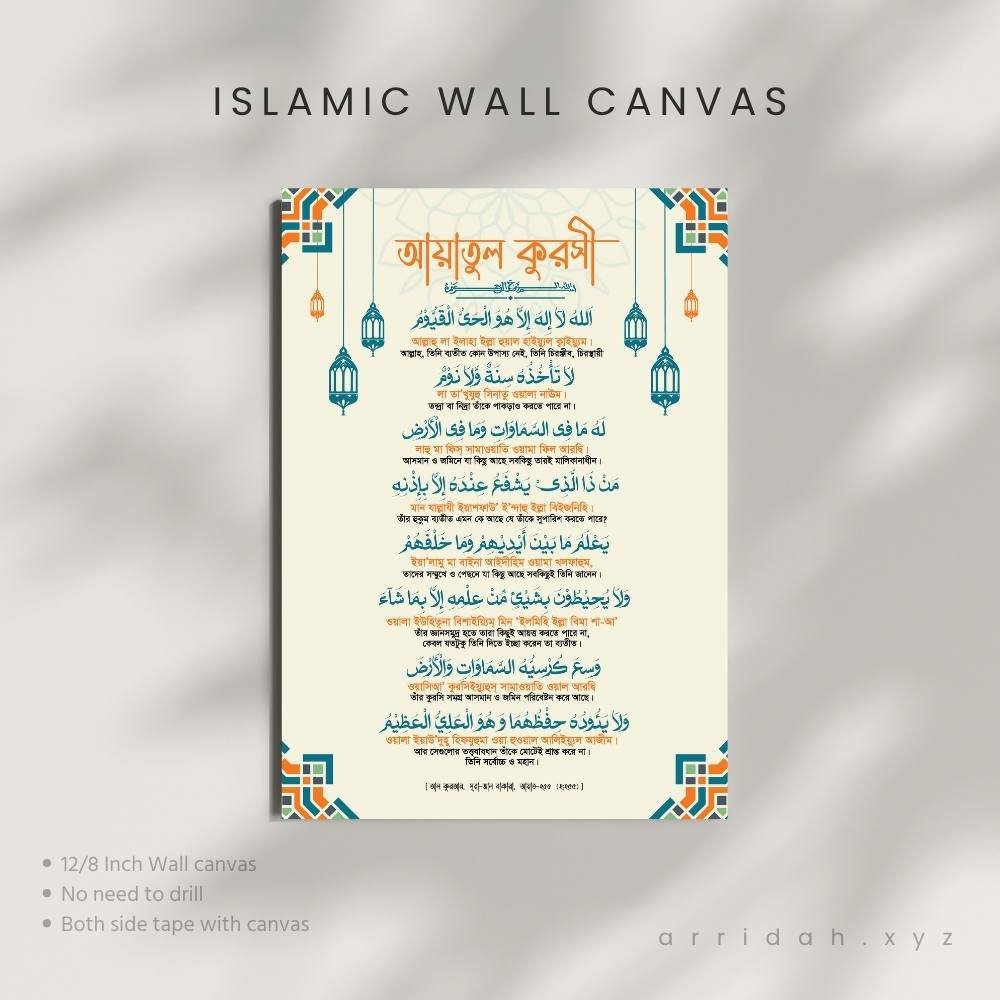 ISLAMIC WALL CANVAS
আয়াতুল কুরসী
اَللهُ لَآ إِلٰهَ إِلاَّ هُوَ الْحَىُّ الْقَيُّوْمُ
আল্লাহু লা ইলাহা ইল্লা হুয়াল হাইয়্যুল ক্বাইয়্যুম।
আল্লাহ, তিনি ব্যতীত কোন উপাস্য নেই, তিনি চিরঞ্জীব, চিরস্থায়ী
لَا تَأْخُذُهُ سِنَةٌ وَّلَا نَوْمٌ
লা তা'খুযুহু সিনাতু ওয়ালা নাউম।
তন্দ্রা বা নিদ্রা তাঁকে পাকড়াও করতে পারে না।
لَهُ مَا فِى السَّمَاوَاتِ وَمَا فِى الْأَرْضِ
লাহু মা ফিস্ সামাওয়াতি ওয়ামা ফিল আরদ্বি।
আসমান ও জমিনে যা কিছু আছে সবকিছু তারই মালিকানাধীন।
مَنْ ذَا الَّذِىْ يَشْفَعُ عِنْدَهُ إِلاَّ بِإِذْنِهِ
মান যাল্লাযী ইয়াশফাউ' ই'ন্দাহু ইল্লা বিইজনিহি।
তাঁর হুকুম ব্যতীত এমন কে আছে যে তাঁকে সুপারিশ করতে পারে?
يَعْلَمُ مَا بَيْنَ أَيْدِيْهِمْ وَمَا خَلْفَهُمْ
ইয়া'লামু মা বাইনা আইদীহিম ওয়ামা খলফাহুম,
তাদের সম্মুখে ও পেছনে যা কিছু আছে সবকিছুই তিনি জানেন।
وَلَا يُحِيْطُوْنَ بِشَيْئٍ مِّنْ عِلْمِهِ إِلاَّ بِمَا شَآءَ
ওয়ালা ইউহিতূনা বিশাইয়্যিম্ মিন 'ইলমিহি ইল্লা বিমা শা-আ'
তাঁর জ্ঞানসমুদ্র হতে তারা কিছুই আয়ত্ত করতে পারে না,
কেবল যতটুকু তিনি দিতে ইচ্ছা করেন তা ব্যতীত।
وَسِعَ كُرْسِيُّهُ السَّمَاوَاتِ وَالْأَرْضَ
ওয়াসিআ' কুরসিইয়্যুহুস্ সামাওয়াতি ওয়াল আরদ্বি
তাঁর কুরসি সমগ্র আসমান ও জমিন পরিবেষ্টন করে আছে।
وَلَا يَئُوْدُهُ حِفْظُهُمَا وَ هُوَ الْعَلِيُّ الْعَظِيْمُ
ওয়ালা ইয়াউ'দুহু হিফযুহুমা ওয়া হুওয়াল আলিইয়্যুল আজীম।
আর সেগুলোর তত্ত্বাবধান তাঁকে মোটেই শ্রান্ত করে না।
তিনি সর্বোচ্চ ও মহান।
[ আল কুরআন, সূরা-আল বাকারা, আয়াত-২৫৫ (২:২৫৫) ]
12/8 Inch Wall canvas
No need to drill
Both side tape with canvas
arridah.xyz